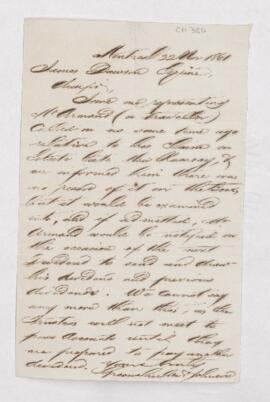 CH 384
Montreal 22 Nov 1861
James Dawson Esquire,
Some one representing
Mr Armand (a traveller)
called on us some time ago
relative to his claim on
Estate Ramsay, &
we informed him there was
no record of it in the Books
but it would be examined
into, and if admitted, Mr
Armand would be notified on
the occasion of the next
dividend to send and draw
his dividend and previous
dividends. We cannot say
any more than this, as the
Trustees will not meet to
pass accounts until they
are prepared to pay another
dividend. Yours truly
& Johnson